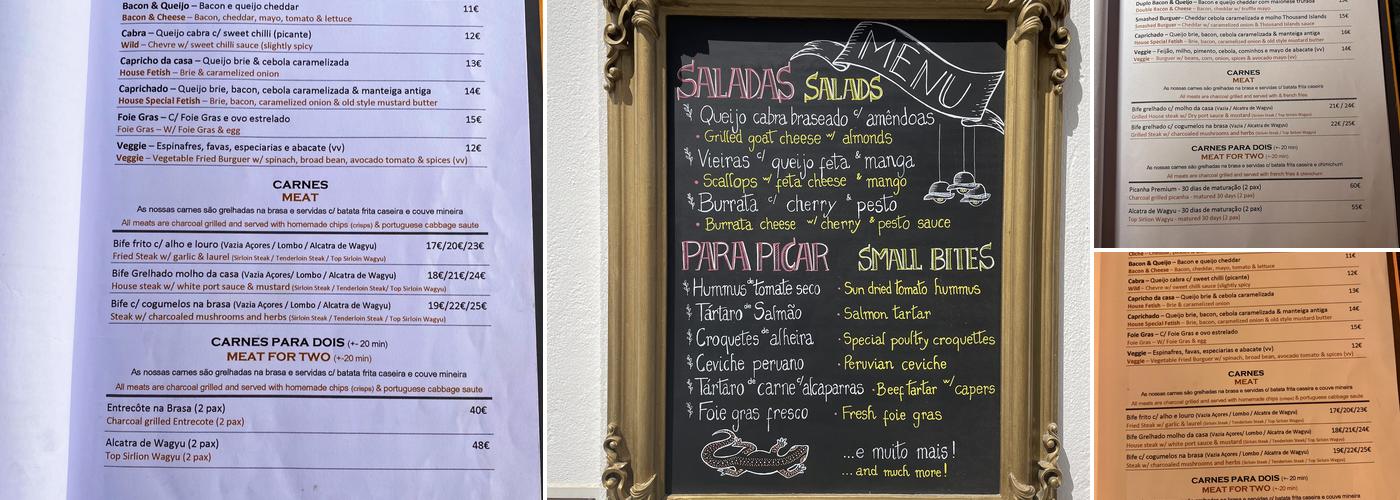 Bacon & Queijo – Bacon e queijo cheddar 11€
Bacon & Cheese – Bacon, cheddar, mayo, tomato & lettuce
Cabra – Queijo cabra c/ sweet chilli (picante) 12€
Wild – Chevre w/ sweet chilli sauce (slightly spicy
Capricho da casa – Queijo brie & cebola caramelizada 13€
House Fetish – Brie & caramelized onion
Caprichado – Queijo brie, bacon, cebola caramelizada & manteiga antiga 14€
House Special Fetish – Brie, bacon, caramelized onion & old style mustard butter
Foie Gras – C/ Foie Gras e ovo estrelado 15€
Foie Gras – W/ Foie Gras & egg
Veggie – Espinafres, favas, especiarias e abacate (vv) 12€
Veggie – Vegetable Fried Burguer w/ spinach, broad bean, avocado tomato & spices (vv)
CARNES
MEAT
As nossas carnes são grelhadas na brasa e servidas c/ batata frita caseira e couve mineira
All meats are charcoal grilled and served with homemade chips (crisps) & portuguese cabbage saute
Bife frito c/ alho e louro (Vazia Açores / Lombo / Alcatra de Wagyu) 17€/20€/23€
Fried Steak w/ garlic & laurel (Sirloin Steak / Tenderloin Steak / Top Sirloin Wagyu)
Bife Grelhado molho da casa (Vazia Açores/ Lombo / Alcatra de Wagyu) 18€/21€/24€
House steak w/ white port sauce & mustard (Sirloin Steak / Tenderloin Steak/ Top Sirloin Wagyu)
Bife c/ cogumelos na brasa (Vazia Açores / Lombo / Alcatra de Wagyu) 19€/22€/25€
Steak w/ charcoaled mushrooms and herbs (Sirloin Steak / Tenderloin Steak / Top Sirloin Wagyu)
CARNES PARA DOIS (+- 20 min)
MEAT FOR TWO (+-20 min)
As nossas carnes são grelhadas na brasa e servidas c/ batata frita caseira e couve mineira
All meats are charcoal grilled and served with homemade chips (crisps) & portuguese cabbage saute
Entrecôte na Brasa (2 pax) 40€
Charcoal grilled Entrecote (2 pax)
Alcatra de Wagyu (2 pax) 48€
Top Sirlion Wagyu (2 pax)
MENU
SALADAS SALADS
Queijo cabra braseado c/ amêndoas
• Grilled goat cheese w/ almonds
Vieiras c/ queijo feta & manga
• Scallops w/ feta cheese & mango
Burrata c/ cherry & pesto
• Burrata cheese w/ cherry & pesto sauce
PARA PICAR SMALL BITES
Hummus de tomate seco · Sun dried tomato hummus
Tártaro de Salmão · Salmon tartar
Croquetes de alheira · Special poultry croquettes
Ceviche peruano · Peruvian ceviche
Tártaro de carne c/ alcaparras · Beef tartar w/ capers
Foie gras fresco · Fresh foie gras
...e muito mais!
...and much more!
Duplo Bacon & Queijo – Bacon e cheddar com maionese trufada 15€
Double Bacon & Cheese – Bacon, cheddar w/ truffle mayo
Smashed Burguer– Cheddar cebola caramelizada e molho Thousand Islands 15€
Smashed Burguer – Cheddar w/ caramelized onions & Thousand Islands sauce
Caprichado – Queijo brie, bacon, cebola caramelizada & manteiga antiga 16€
House Special Fetish – Brie, bacon, caramelized onion & old style mustard butter
Veggie – Feijão, milho, pimento, cebola, cominhos e mayo de abacate (vv) 14€
Veggie – Burguer w/ beans, corn, onion, spices & avocado mayo (vv)
CARNES
MEAT
As nossas carnes são grelhadas na brasa e servidas c/ batata frita caseira
All meats are charcoal grilled and served with & french fries
Bife grelhado c/ molho da casa (Vazia / Alcatra de Wagyu) 21€ / 24€
Grilled House steak w/ Dry port sauce & mustard (Sirloin Steak / Top Sirloin Wagyu)
Bife grelhado c/ cogumelos na brasa (Vazia / Alcatra de Wagyu) 22€ /25€
Grilled Steak w/ charcoaled mushrooms and herbs (Sirloin Steak / Top Sirloin Wagyu)
CARNES PARA DOIS (+- 20 min)
MEAT FOR TWO (+-20 min)
As nossas carnes são grelhadas na brasa e servidas c/ batata frita caseira e chimichurri
All meats are charcoal grilled and served with french fries & chimichurri
Picanha Premium - 30 dias de maturação (2 pax) 60€
Charcoal grilled picanha - matured 30 days (2 pax)
Alcatra de Wagyu - 30 dias de maturação (2 pax) 55€
Top Sirlion Wagyu - matured 30 days (2 pax)
11€
Bacon & Queijo – Bacon e queijo cheddar
Bacon & Cheese – Bacon, cheddar, mayo, tomato & lettuce
Cabra – Queijo cabra c/ sweet chilli (picante) 12€
Wild – Chevre w/ sweet chilli sauce (slightly spicy
Capricho da casa – Queijo brie & cebola caramelizada 13€
House Fetish – Brie & caramelized onion
Caprichado – Queijo brie, bacon, cebola caramelizada & manteiga antiga 14€
House Special Fetish – Brie, bacon, caramelized onion & old style mustard butter
Foie Gras – C/ Foie Gras e ovo estrelado 15€
Foie Gras – W/ Foie Gras & egg
Veggie – Espinafres, favas, especiarias e abacate (vv) 12€
Veggie – Vegetable Fried Burguer w/ spinach, broad bean, avocado tomato & spices (vv)
CARNES
MEAT
As nossas carnes são grelhadas na brasa e servidas c/ batata frita caseira e couve mineira
All meats are charcoal grilled and served with homemade chips (crisps) & portuguese cabbage saute
Bife frito c/ alho e louro (Vazia Açores / Lombo / Alcatra de Wagyu) 17€/20€/23€
Fried Steak w/ garlic & laurel (Sirloin Steak / Tenderloin Steak / Top Sirloin Wagyu)
Bife Grelhado molho da casa (Vazia Açores/ Lombo / Alcatra de Wagyu) 18€/21€/24€
House steak w/ white port sauce & mustard (Sirloin Steak / Tenderloin Steak/ Top Sirloin Wagyu)
Bife c/ cogumelos na brasa (Vazia Açores / Lombo / Alcatra de Wagyu) 19€/22€/25€
Steak w/ charcoaled mushrooms and herbs (Sirloin Steak / Tenderloin Steak / Top Sirloin Wagyu)
CARNES PARA DOIS (+- 20 min)
MEAT FOR TWO (+-20 min)